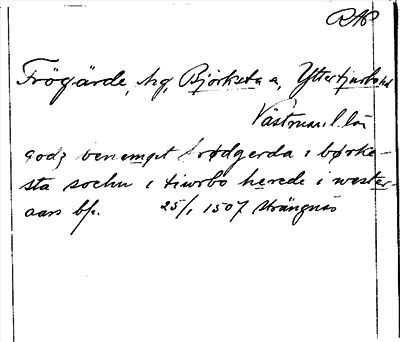 RAP
Frögärde, hg, Björksta sn, Yttertjurbo hd
Västmanl. län
godz benempt frødgerda i børke-
sta sochn i tiwrbo herede i wester-
aars bp. 25/1 1507 Strängnäs